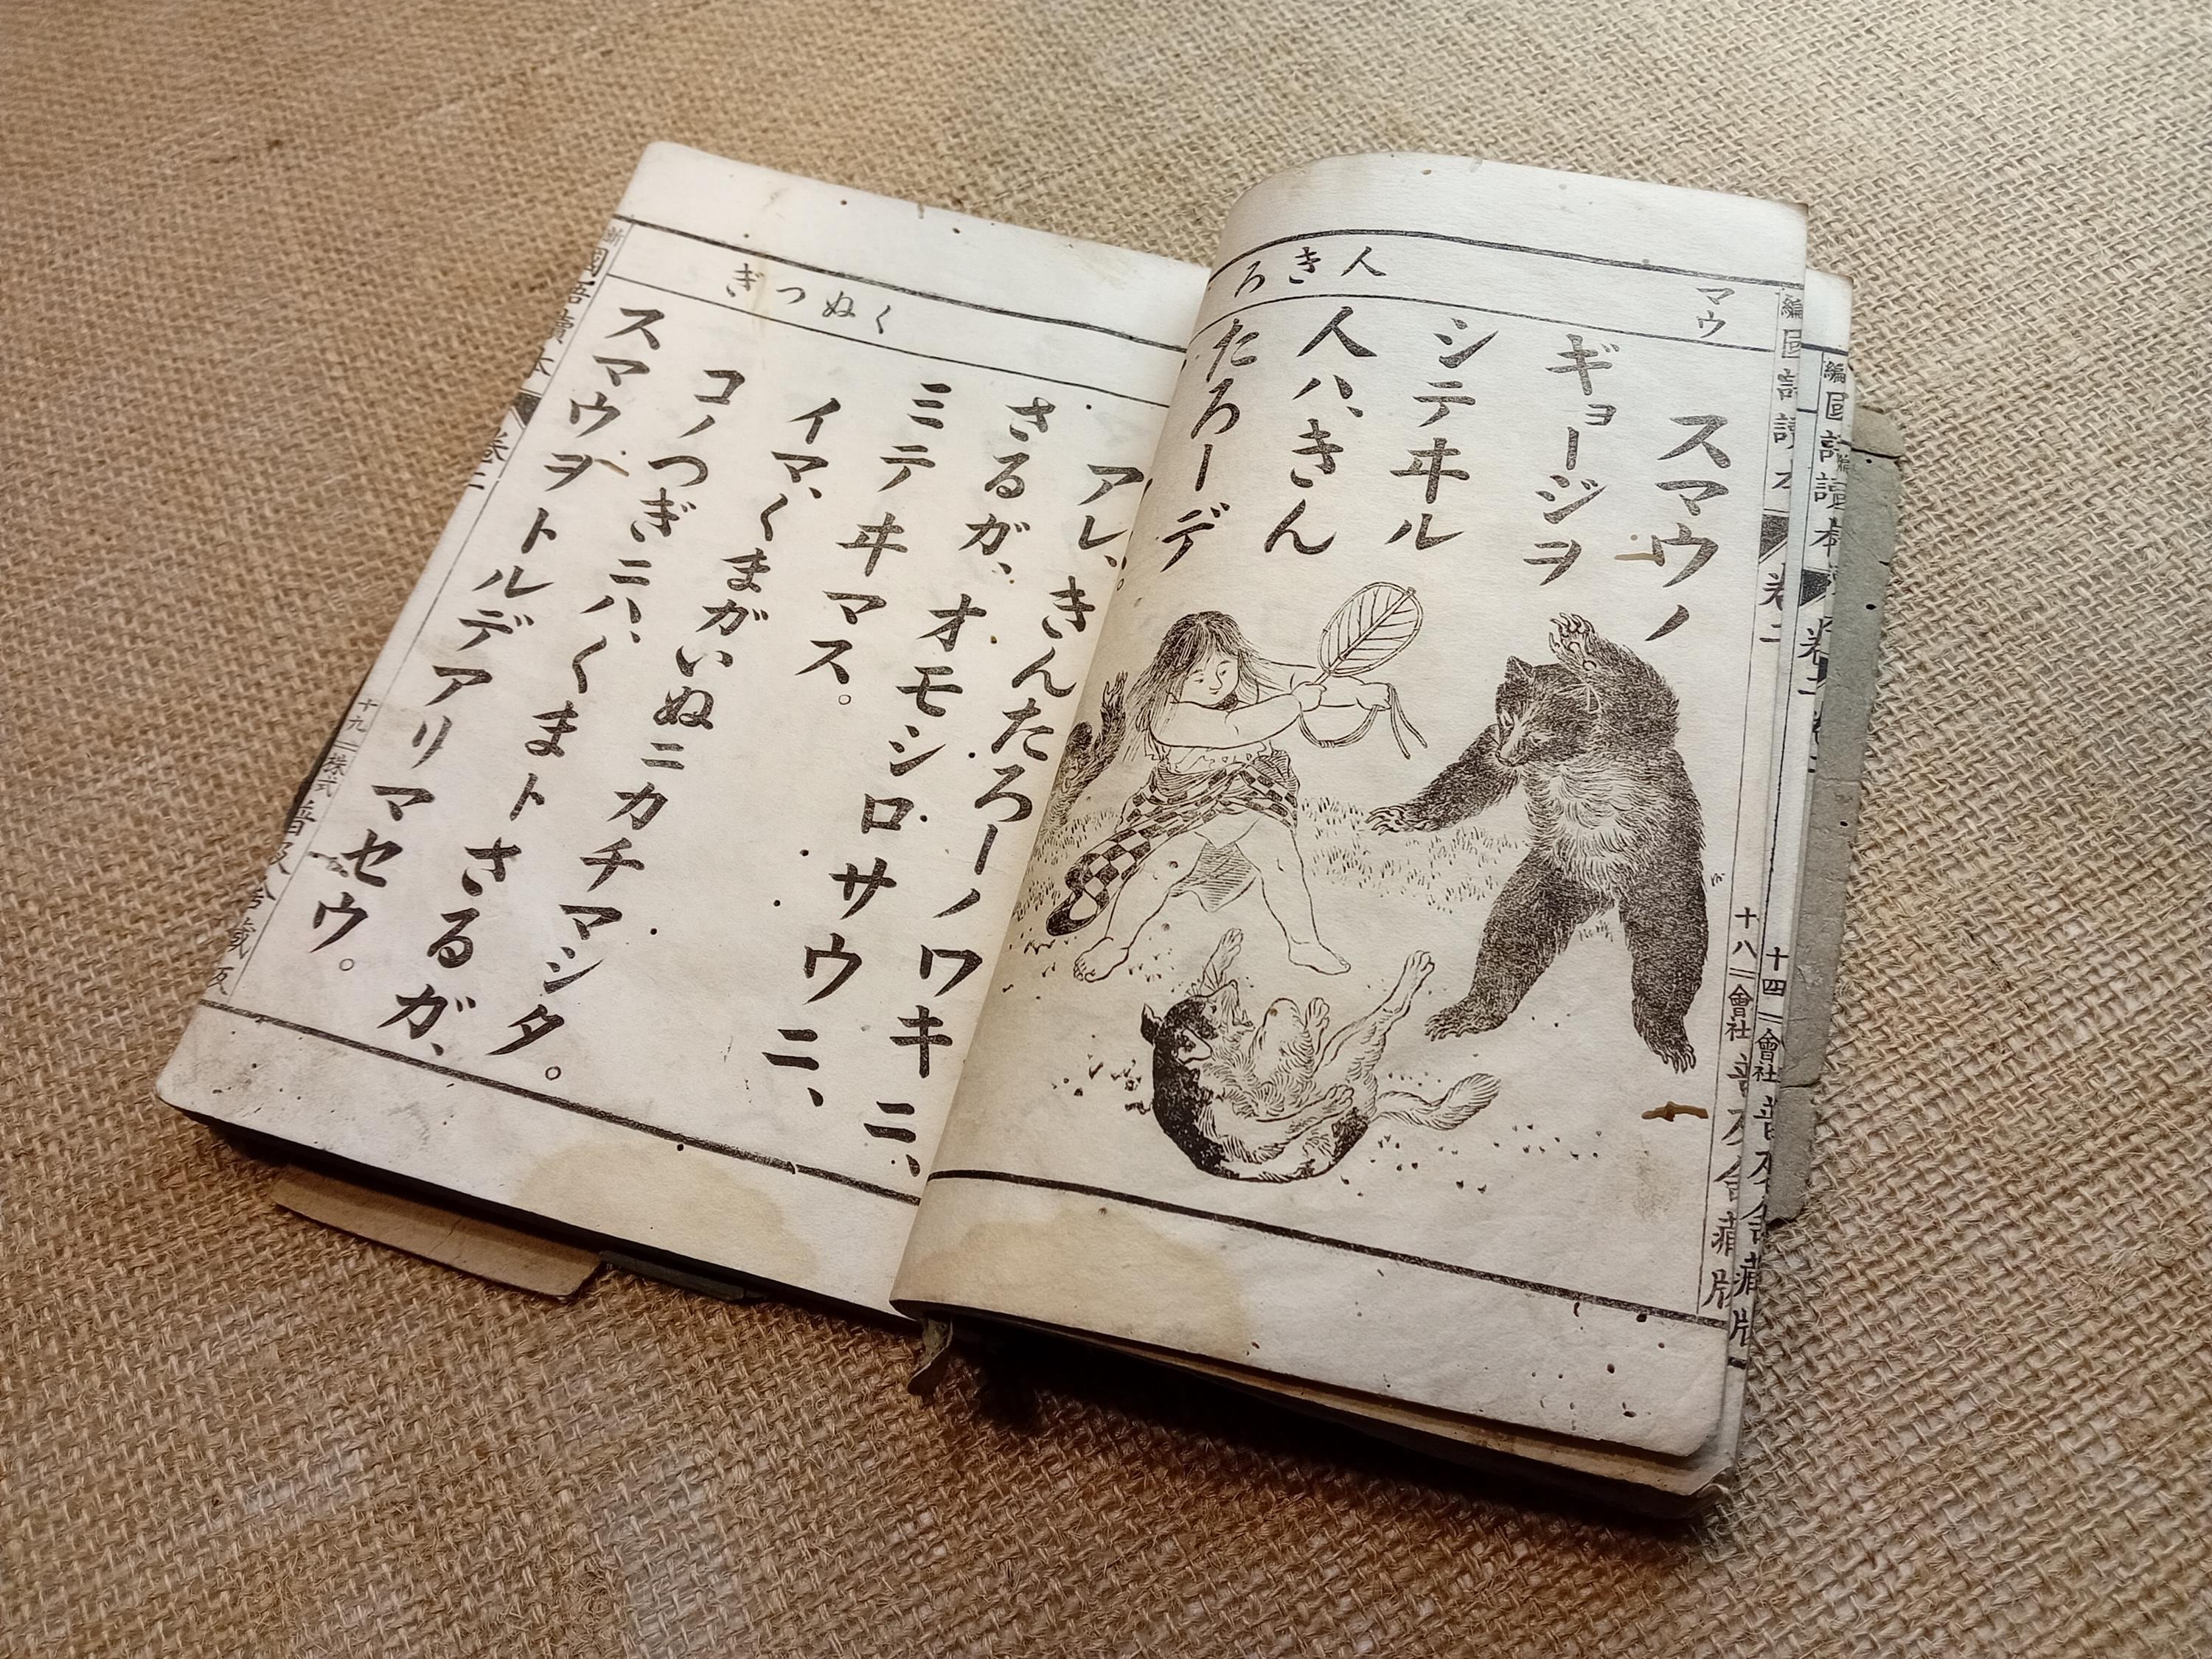 マウ
人きろ
スマウノ
ギョージヲ
シテヰル
人ハ、きん
たろーデ
くぬつぎ
アレ、きんたろーノワキニ、
さるガ、オモシロサウニ、
ミテヰマス。
イマ、くまがいぬニカチマシタ。
コノつぎニハ、くまトさるガ、
スマウヲトルデアリマセウ。
編國語讀本
卷二
十八
會社
編國語讀本
卷二
十四
會社
藏版
十九
株式